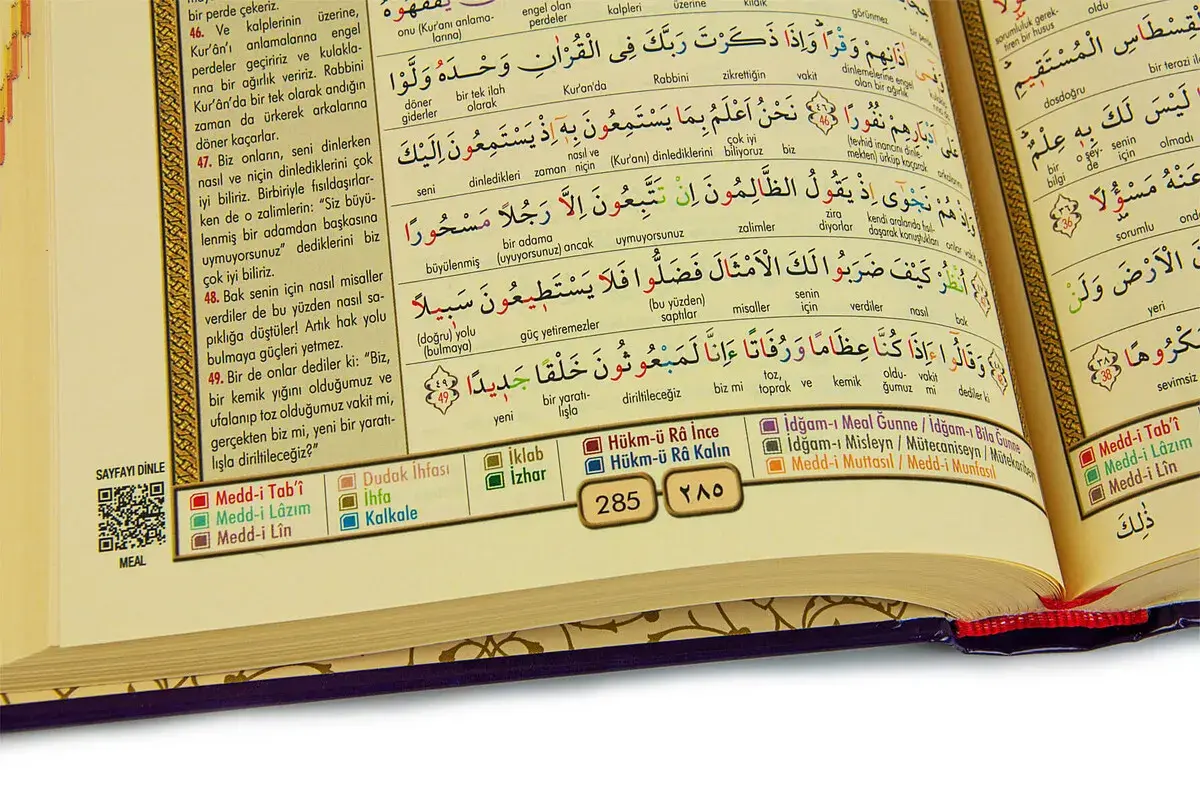 bir perde çekeriz.
46. Ve kalplerinin üzerine,
Kur'ân'ı anlamalarına engel
perdeler geçiririz ve kulakla-
rına bir ağırlık veririz. Rabbini
Kur'ân'da bir tek olarak andığın
zaman da ürkerek arkalarına
döner kaçarlar.
47. Biz onların, seni dinlerken
nasıl ve niçin dinlediklerini çok
iyi biliriz. Birbiriyle fısıldaşırlar-
ken de o zalimlerin: "Siz büyü-
lenmiş bir adamdan başkasına
uymuyorsunuz" dediklerini biz
çok iyi biliriz.
48. Bak senin için nasıl misaller
verdiler de bu yüzden nasıl sa-
pıklığa düştüler! Artık hak yolu
bulmaya güçleri yetmez.
49. Bir de onlar dediler ki: "Biz,
bir kemik yığını olduğumuz ve
ufalanıp toz olduğumuz vakit mi,
gerçekten biz mi, yeni bir yaratı-
lışla diriltileceğiz?"
onu (Kur'anı anlama-
larına) engel olan perdeler kalpleri üzerine kıldık görünmez
وَفٖٓي اٰذَانِهِمْ وَقْرًاۜ وَاِذَا ذَكَرْتَ رَبَّكَ فِي الْقُرْاٰنِ وَحْدَهُ وَلَّوْا
döner giderler bir tek ilah olarak Kur'an'da Rabbini zikrettiğin vakit dinlemelerine engel olan bir ağırlık
عَلٰٓى اَدْبَارِهِمْ نُفُورًا ﴿٤٦﴾ 46 نَحْنُ اَعْلَمُ بِمَا يَسْتَمِعُونَ بِهٖٓ اِذْ يَسْتَمِعُونَ اِلَيْكَ
seni dinledikleri zaman nasıl ve niçin (Kur'anı) dinlediklerini çok iyi biliyoruz biz (tevhid inancını dinle-
mekten) ürküp kaçarak arkalarına
وَاِذْ هُمْ نَجْوٰٓى اِذْ يَقُولُ الظَّالِمُونَ اِنْ تَتَّبِعُونَ اِلَّا رَجُلًا مَسْحُورًا
büyülenmiş bir adama (uyuyorsunuz) ancak uymuyorsunuz zalimler diyorlar zira kendi aralarında fısıl-
daşarak konuştukları
اُنْظُرْ كَيْفَ ضَرَبُوا لَكَ الْاَمْثَالَ فَضَلُّوا فَلَا يَسْتَطٖيعُونَ سَبٖيلًا
(doğru) yolu (bulmaya) güç yetiremezler (bu yüzden) saptılar misaller senin için verdiler nasıl bak
وَقَالُٓوا ءَاِذَا كُنَّا عِظَامًا وَرُفَاتًا ءَاِنَّا لَمَبْعُوثُونَ خَلْقًا جَدٖيدًا ﴿٤٩﴾ 49
yeni bir yaratı-
lışla diriltileceğiz biz mi toz, toprak ve kemik oldu-
ğumuz vakit mi dediler ki
SAYFAYI DİNLE
MEAL
Medd-i Tab'î
Medd-i Lâzım
Medd-i Lîn
Dudak İhfası
İhfa
Kalkale
İklab
İzhar
Hükm-ü Râ İnce
Hükm-ü Râ Kalın
İdğam-ı Meal Ğunne / İdğam-ı Bila Ğunne
İdğam-ı Misleyn / Mütecaniseyn / Mütekaribeyn
Medd-i Muttasıl / Medd-i Munfasıl
285
٢٨٥
sorumluluk gerek-
tiren bir husus oldu
الْمُسْتَقٖيمِ
dosdoğru bir terazi
لَيْسَ لَكَ بِهٖ عِلْمٌ
bir bilgi o şey- de senin için olmadı
عَنْهُ مَسْؤُلًا ﴿٣٦﴾ 36
sorumlu ondan
الْاَرْضَ وَلَنْ
yeri
مَكْرُوهًا ﴿٣٨﴾ 38
sevimsiz
Medd-i Tab'î
Medd-i Lâzım
Medd-i Lîn
ذٰلِكَ